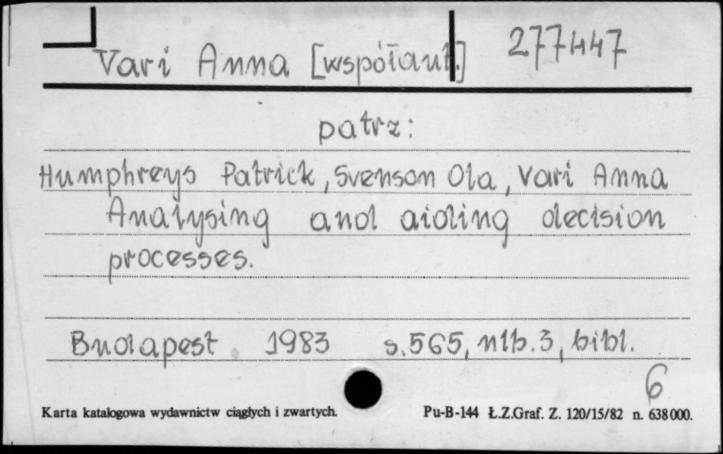 Vari Anna [współaut.] 277447
patrz:
Humphreys Patrick, Svenson Ola, Vari Anna
Analysing and aiding decision
processes.
Budapest 1983 s. 565, nlb. 3, bibl.
6
Karta katalogowa wydawnictw ciągłych i zwartych. Pu-B-144 Ł.Z.Graf. Z. 120/15/82 n. 638000.